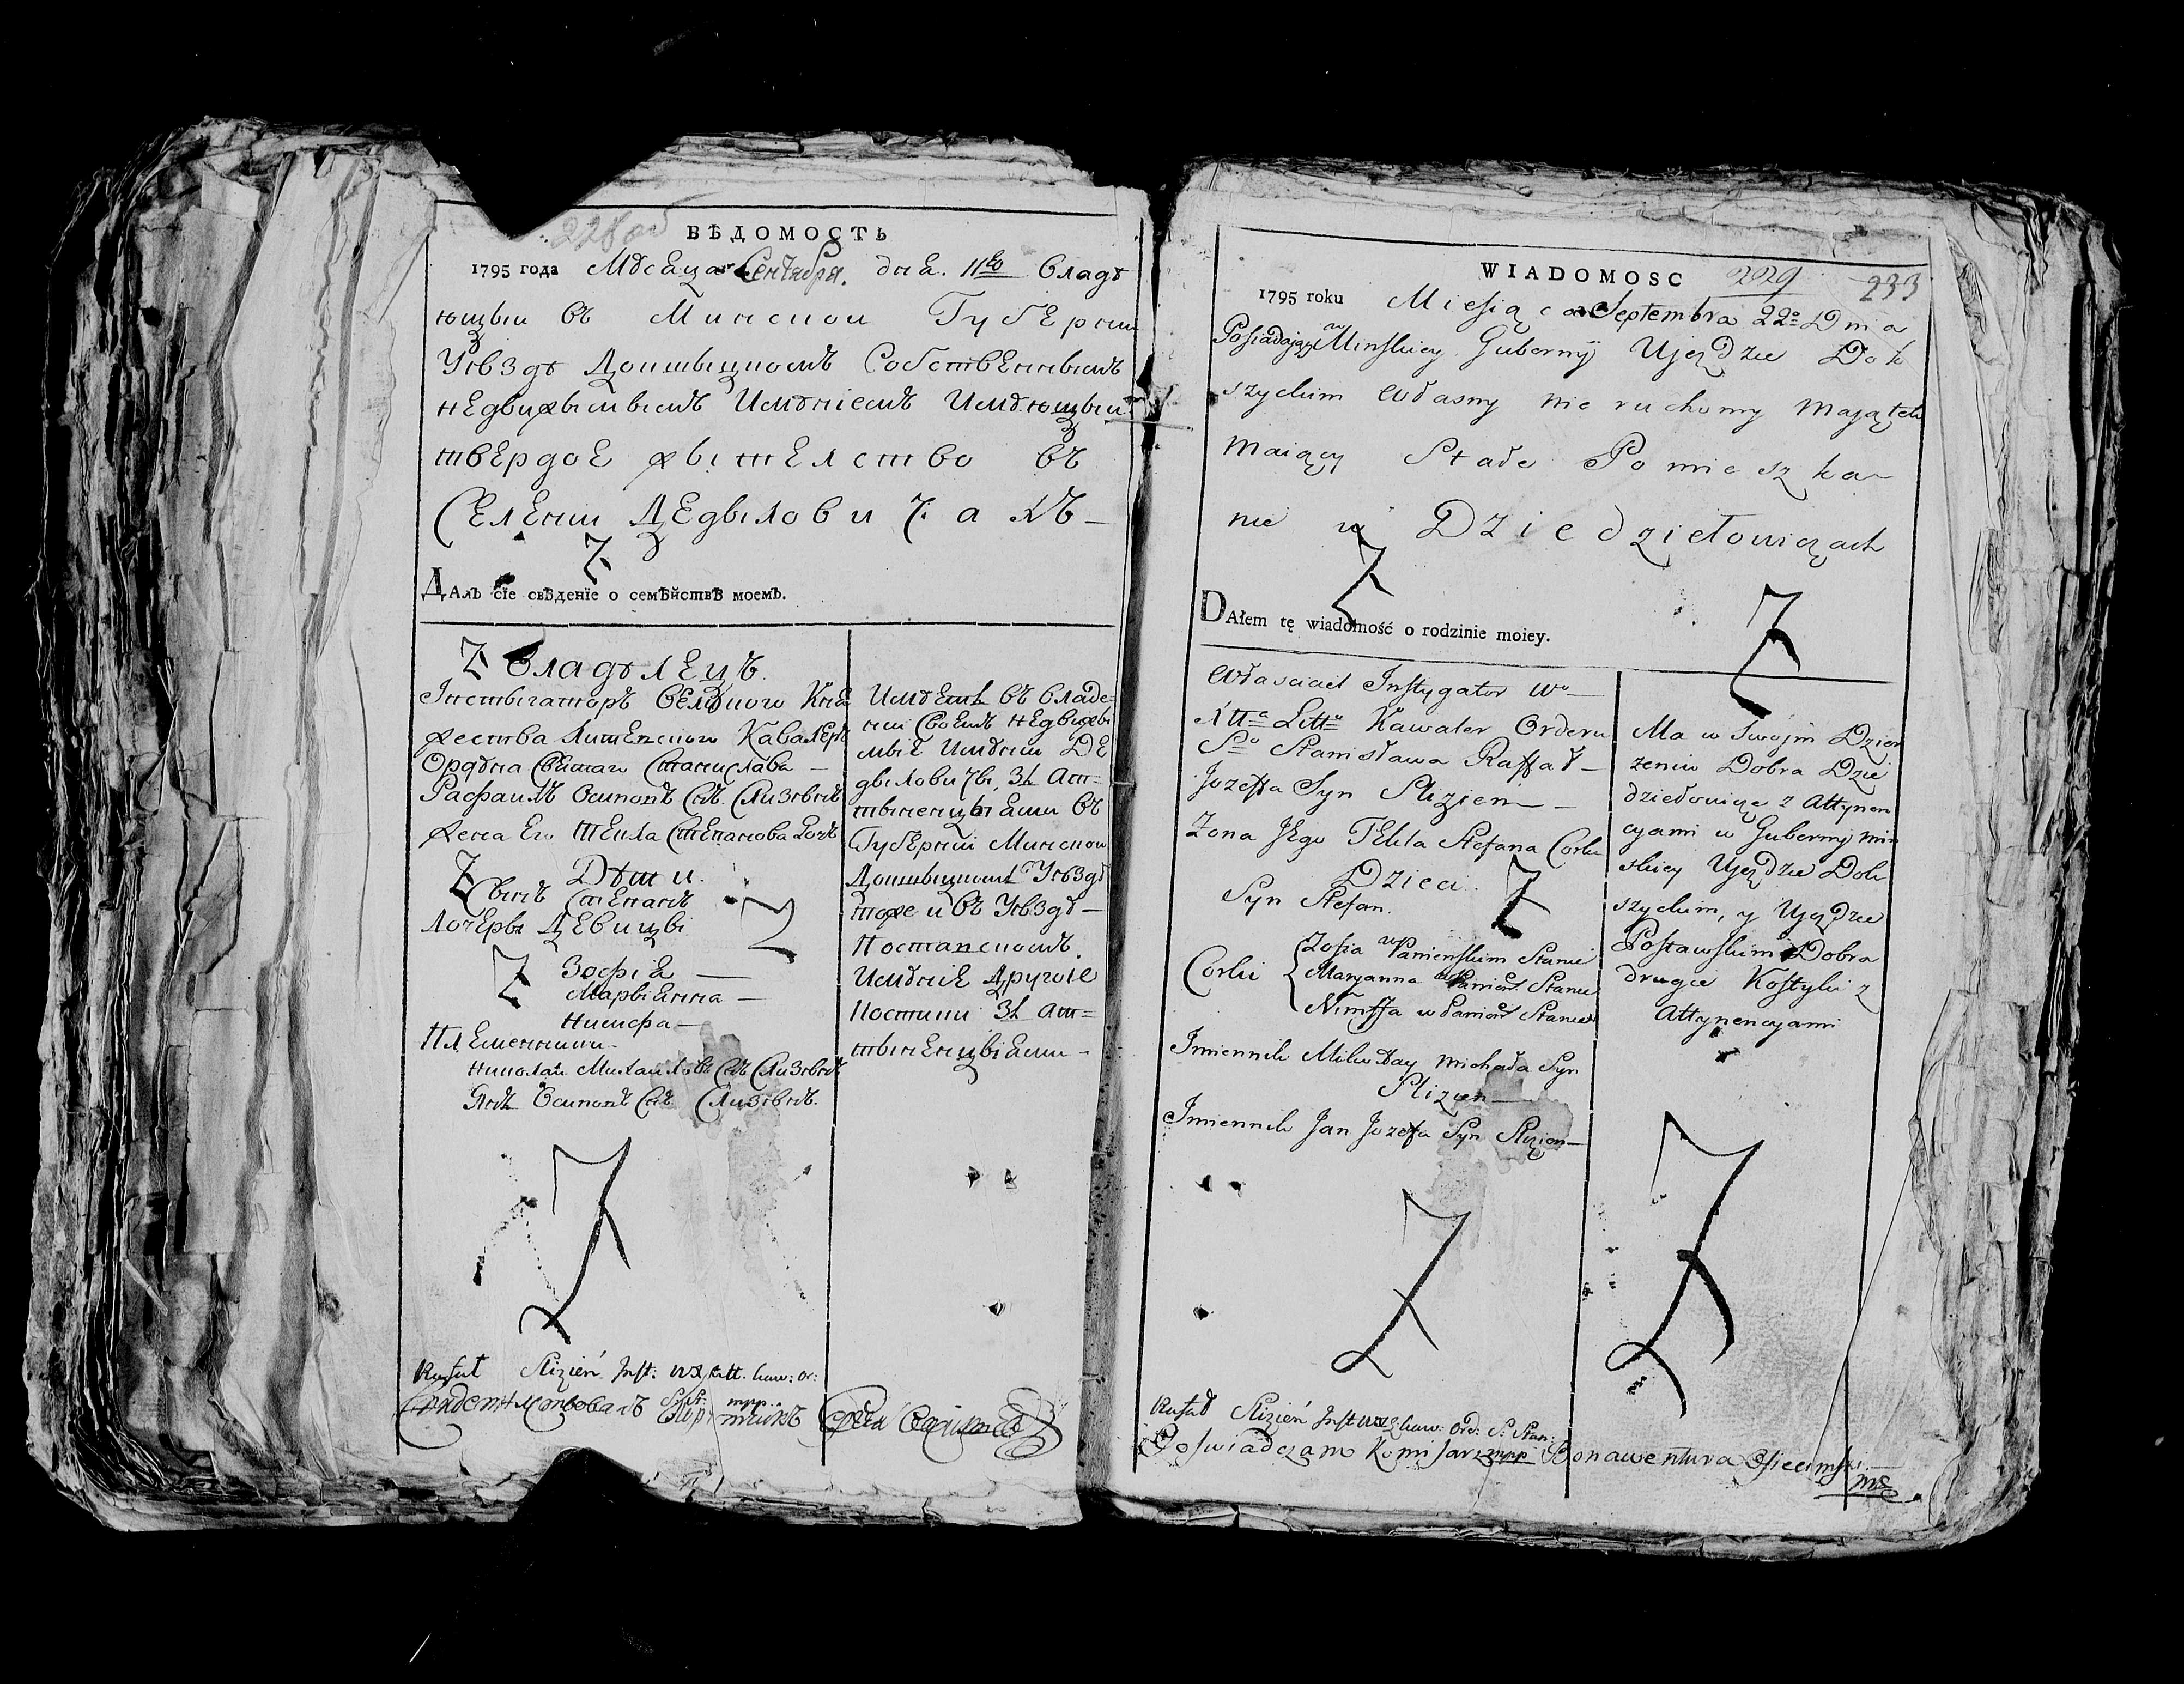 228 об
ВѢДОМОСТЬ
1795 года Мѣсяца Сентября. дня. 11го владѣ
ющыи въ Минскои Губернии
Уѣздѣ Докшыцкомъ Собственнымъ
недвижымымъ Имѣнiемъ Имѣющыи
твердое жытелство въ
Селении Дедыловичахъ
Далъ сїе свѣденїе о семѣйствѣ моемъ.
Владѣлецъ.
Инстыгаторъ Великого Кня
жества Литевского Кавалеръ
Ордѣна Святаго Станислава
Рафаилъ Осиповъ Снъ Слизѣнъ
жена Его Текла Степанова дочъ
Дѣти.
Сынъ Степанъ
Дочеры Девицы
Зофiя
Марыянна
Нимфа
Племенники
Николаи Михаиловъ Снъ Слизѣнъ
Янъ Осиповъ Снъ Слизѣнъ.
Имѣетъ въ владе
нии Своемъ недвижы
мые имѣнии Де
дыловичы, Зъ Ат=
тыненцыями въ
Губернии Минскои
Докшыцкомъ Уѣздѣ
тоже и въ Уѣздѣ
Поставскомъ.
Имѣние Другое
Костики Зъ Ат=
тыненцыями
Rafał Slizień Inst: WX Litt. kaw: or:
S: St: mpp.
WIADOMOSC 229 233
1795 roku Miesiąca Septembra 22o Dnia
Posiadający w Minskiey Gubernÿi Ujezdzie Dok
szyckim własny nie ruchomy Majątek
Maiący Stałe Pomieszka
nie w Dziedziełowiczach
DAłem tę wiadomość o rodzinie moiey.
Własciciel Instygator Wo
Xtta Litto Kawaler Orderu
So Stanisława Raffał
Jozeffa Syn Slizień
Zona Jego Tekla Stefana Corka
Dzieci.
Syn Stefan.
Corki
Zofia w Panienskim Stanie
Maryanna w Panień Stanie
Nimffa w Panień Stanie
Imiennik Mikołay Michała Syn
Slizien
Imiennik Jan Jozeffa Syn Slizien
Ma w Swojm Dzier
zeniu Dobra Dzie
dziełowicze z Attynen
cyami w Guberny min
skiey Ujezdzie Dok
szyckim, y Ujezdzie
Postawskim Dobra
drugie Kostyki z
Attynencyami
Rafał Slizień Inst WX kaw: Ord: S: Stan:
Poswiadczam Komisarz mpp Bonawentura